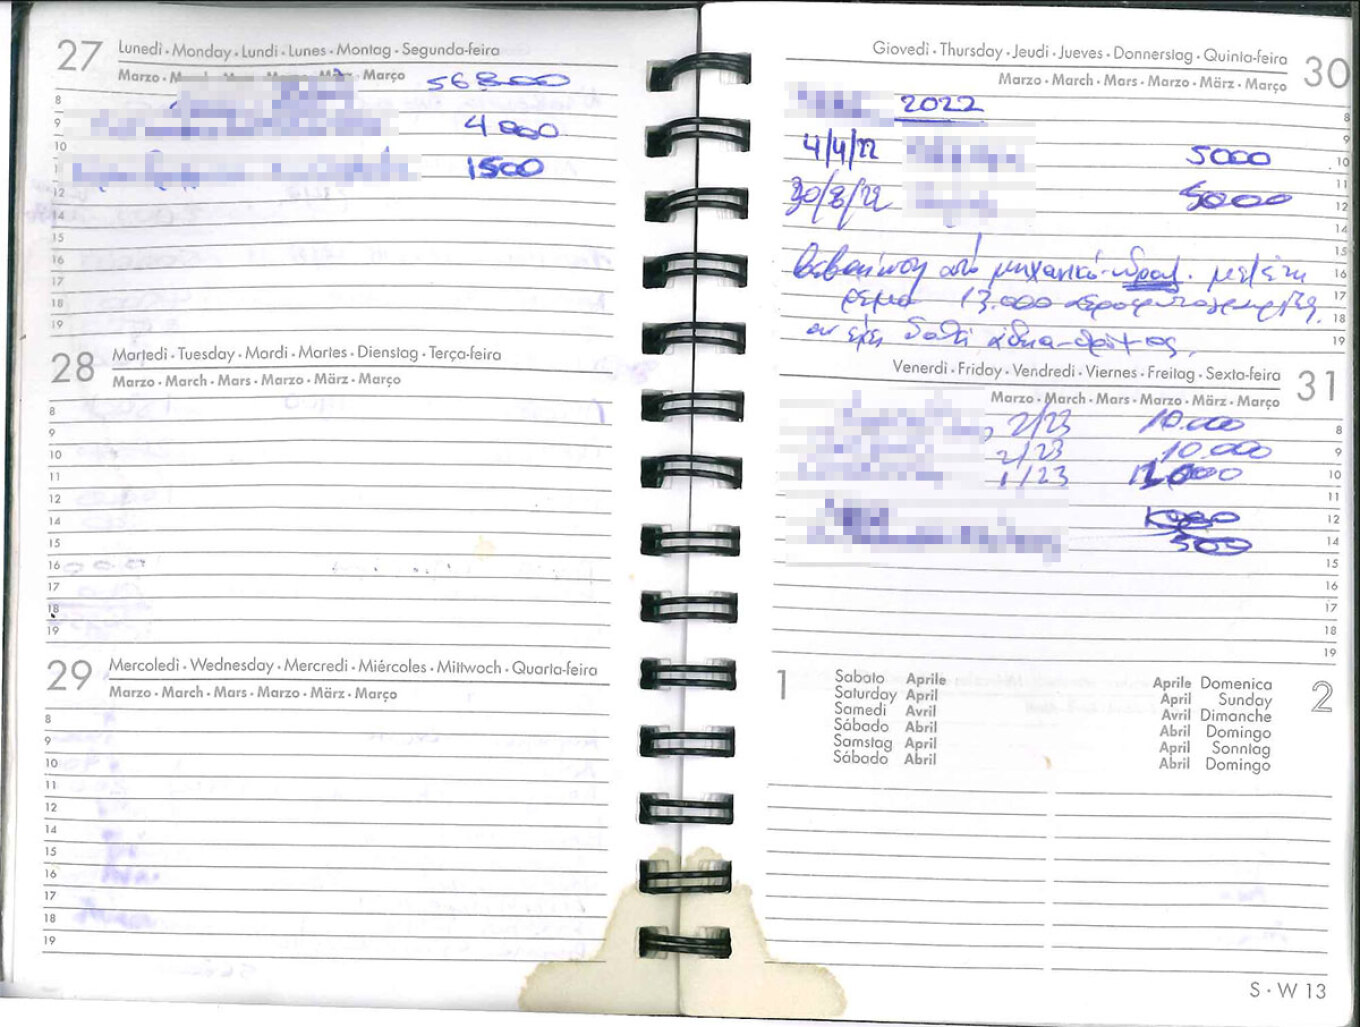 27
Lunedì · Monday · Lundi · Lunes · Montag · Segunda-feira
Marzo · Março
56800
8
9
4000
10
11
1500
12
14
15
16
17
18
19
28
Martedì · Tuesday · Mardi · Martes · Dienstag · Terça-feira
Marzo · March · Mars · Marzo · März · Março
8
9
10
11
12
14
15
16
17
18
19
29
Mercoledì · Wednesday · Mercredi · Miércoles · Mittwoch · Quarta-feira
Marzo · March · Mars · Marzo · März · Março
8
9
10
11
12
14
15
16
17
18
19
Giovedì · Thursday · Jeudi · Jueves · Donnerstag · Quinta-feira
30
Marzo · March · Mars · Marzo · März · Março
2022
8
9
4/4/22 5000
10
11
30/8/22 5000
12
14
15
από μηχανικό 16
ρεμα 13.000 17
18
αν έχει δοθεί άδεια 19
Venerdì · Friday · Vendredi · Viernes · Freitag · Sexta-feira
31
Marzo · March · Mars · Marzo · März · Março
2/23 10.000 8
2/23 10.000 9
1/23 10
11
12
500 14
15
16
17
18
19
1
Sabato Aprile
Saturday April
Samedi Avril
Sábado Abril
Samstag April
Sábado Abril
2
Aprile Domenica
April Sunday
Avril Dimanche
Abril Domingo
April Sonntag
Abril Domingo
S · W 13